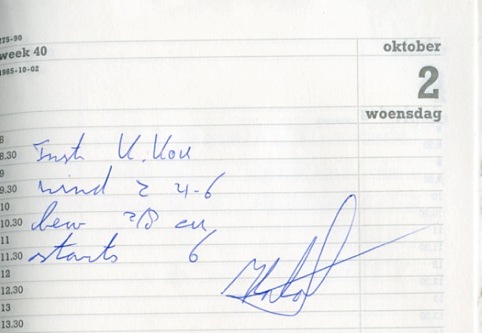 275-90
week 40
1985-10-02
oktober
2
woensdag
8
8.30 Inst K.Kou
9
9.30 wind 2 4-6
10
10.30 bew 7/8 cu
11
11.30 starts 6
12
12.30
13
13.30